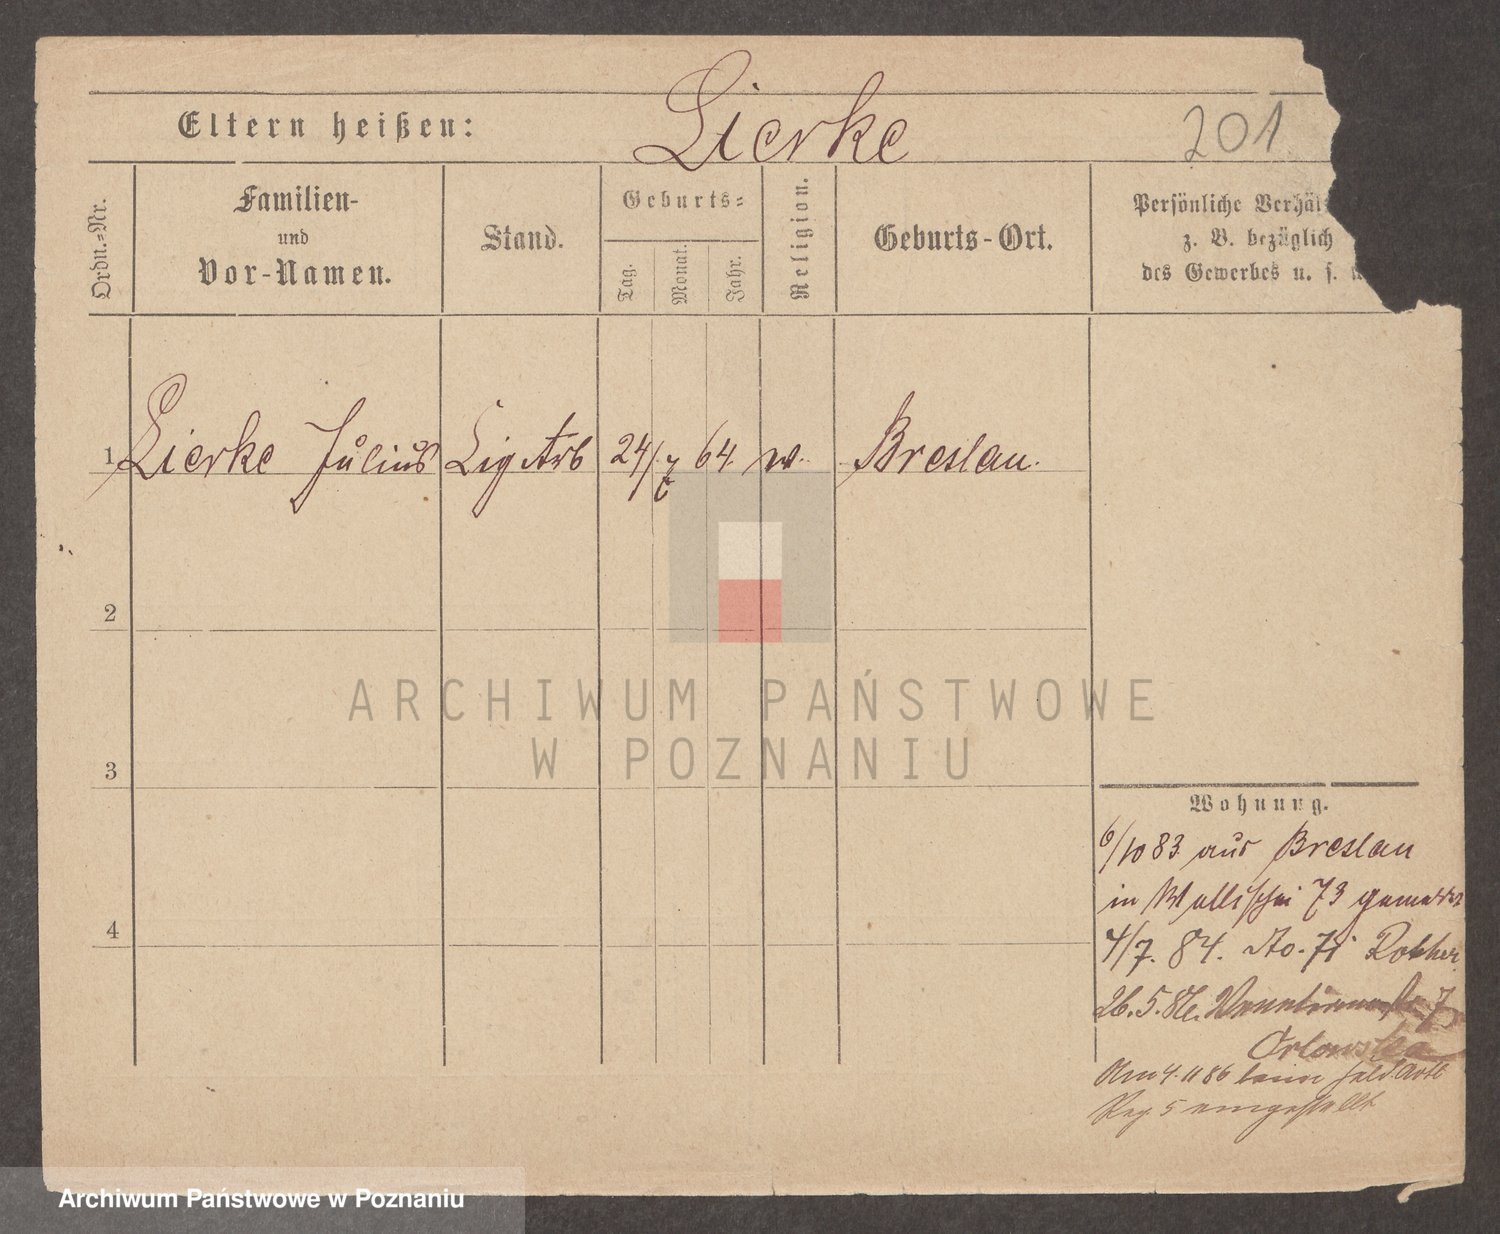 Lierke
Eltern heißen:
201
Ordn.-Nr.
Familien-
und
Vor-Namen.
Stand.
Geburts-
Tag.
Monat.
Jahr.
Religion.
Geburts-Ort.
Persönliche Verhäl
z. B. bezüglich
des Gewerbes u. s.
1 Lierke Julius Cig Arb 24/7 64 Breslau.
2
3
4
Wohnung.
6/10 83 aus Breslau
in Wallischei 73 gemeldet
4/7. 84.
26. 5. 86.
Orlowska
Am 4. 11 86 beim Feld Artl
Reg. 5 eingestellt
ARCHIWUM PAŃSTWOWE
W POZNANIU
Archiwum Państwowe w Poznaniu